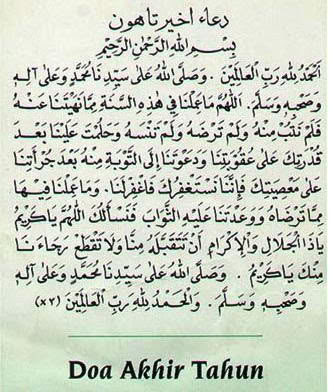 دعاء اخير تاهون
بِسْمِ اللهِ الرَّحْمٰنِ الرَّحِيْمِ
اَلْحَمْدُ لِلهِ رَبِّ الْعَالَمِيْنَ . وَصَلَّى اللهُ عَلَى سَيِّدِنَا مُحَمَّدٍ وَعَلَى آلِهِ
وَصَحْبِهِ وَسَلَّمَ . اَللّٰهُمَّ مَا عَمِلْنَا فِي هٰذِهِ السَّنَةِ مِمَّا نَهَيْتَنَا عَنْهُ
فَلَمْ نَتُبْ مِنْهُ وَلَمْ تَرْضَهُ وَلَمْ تَنْسَهُ وَحَلُمْتَ عَلَيْنَا بَعْدَ
قُدْرَتِكَ عَلَى عُقُوبَتِنَا وَدَعَوْتَنَا إِلَى التَّوْبَةِ مِنْهُ بَعْدَ جُرْأَتِنَا
عَلَى مَعْصِيَتِكَ فَإِنَّنَا نَسْتَغْفِرُكَ فَاغْفِرْلَنَا . وَمَا عَمِلْنَا فِيهَا
مِمَّا تَرْضَاهُ وَوَعَدْتَنَا عَلَيْهِ الثَّوَابَ فَنَسْأَلُكَ اللّٰهُمَّ يَا كَرِيْمُ
يَا ذَا الْجَلَالِ وَالْإِكْرَامِ أَنْ تَتَقَبَّلَهُ مِنَّا وَلَا تَقْطَعْ رَجَاءَنَا
مِنْكَ يَا كَرِيْمُ . وَصَلَّى اللهُ عَلَى سَيِّدِنَا مُحَمَّدٍ وَعَلَى آلِهِ
وَصَحْبِهِ وَسَلَّمَ . وَالْحَمْدُ لِلهِ رَبِّ الْعَالَمِيْنَ (٣×)
Doa Akhir Tahun